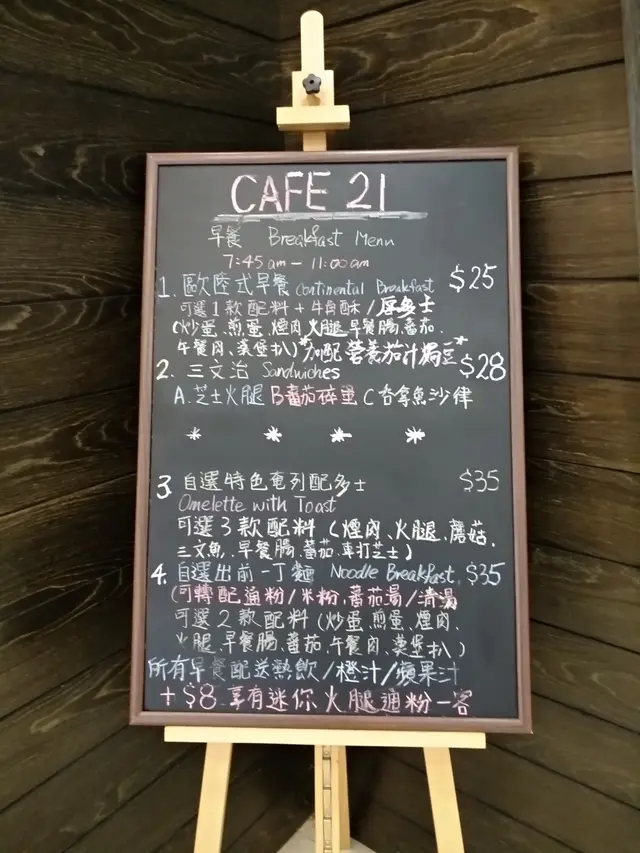 CAFE 21
早餐 Breakfast Menu
7:45 am - 11:00 am
1. 歐陸式早餐 Continental Breakfast $25
可選1款配料+牛角酥/厚多士
(炒蛋、煎蛋、煙肉、火腿、早餐腸、番茄、
午餐肉、漢堡扒) *加配營養茄汁焗豆*
2. 三文治 Sandwiches $28
A.芝士火腿 B蕃茄碎蛋 C吞拿魚沙律
* * * *
3. 自選特色奄列配多士 $35
Omelette with Toast
可選3款配料 (煙肉、火腿、蘑菇、
三文魚、早餐腸、蕃茄、車打芝士)
4. 自選出前一丁麵 Noodle Breakfast $35
(可轉配通粉/米粉、蕃茄湯/清湯
可選2款配料 (炒蛋、煎蛋、煙肉、
火腿、早餐腸、蕃茄、午餐肉、漢堡扒)
所有早餐配送熱飲/橙汁/蘋果汁
+$8 享有迷你火腿通粉一客